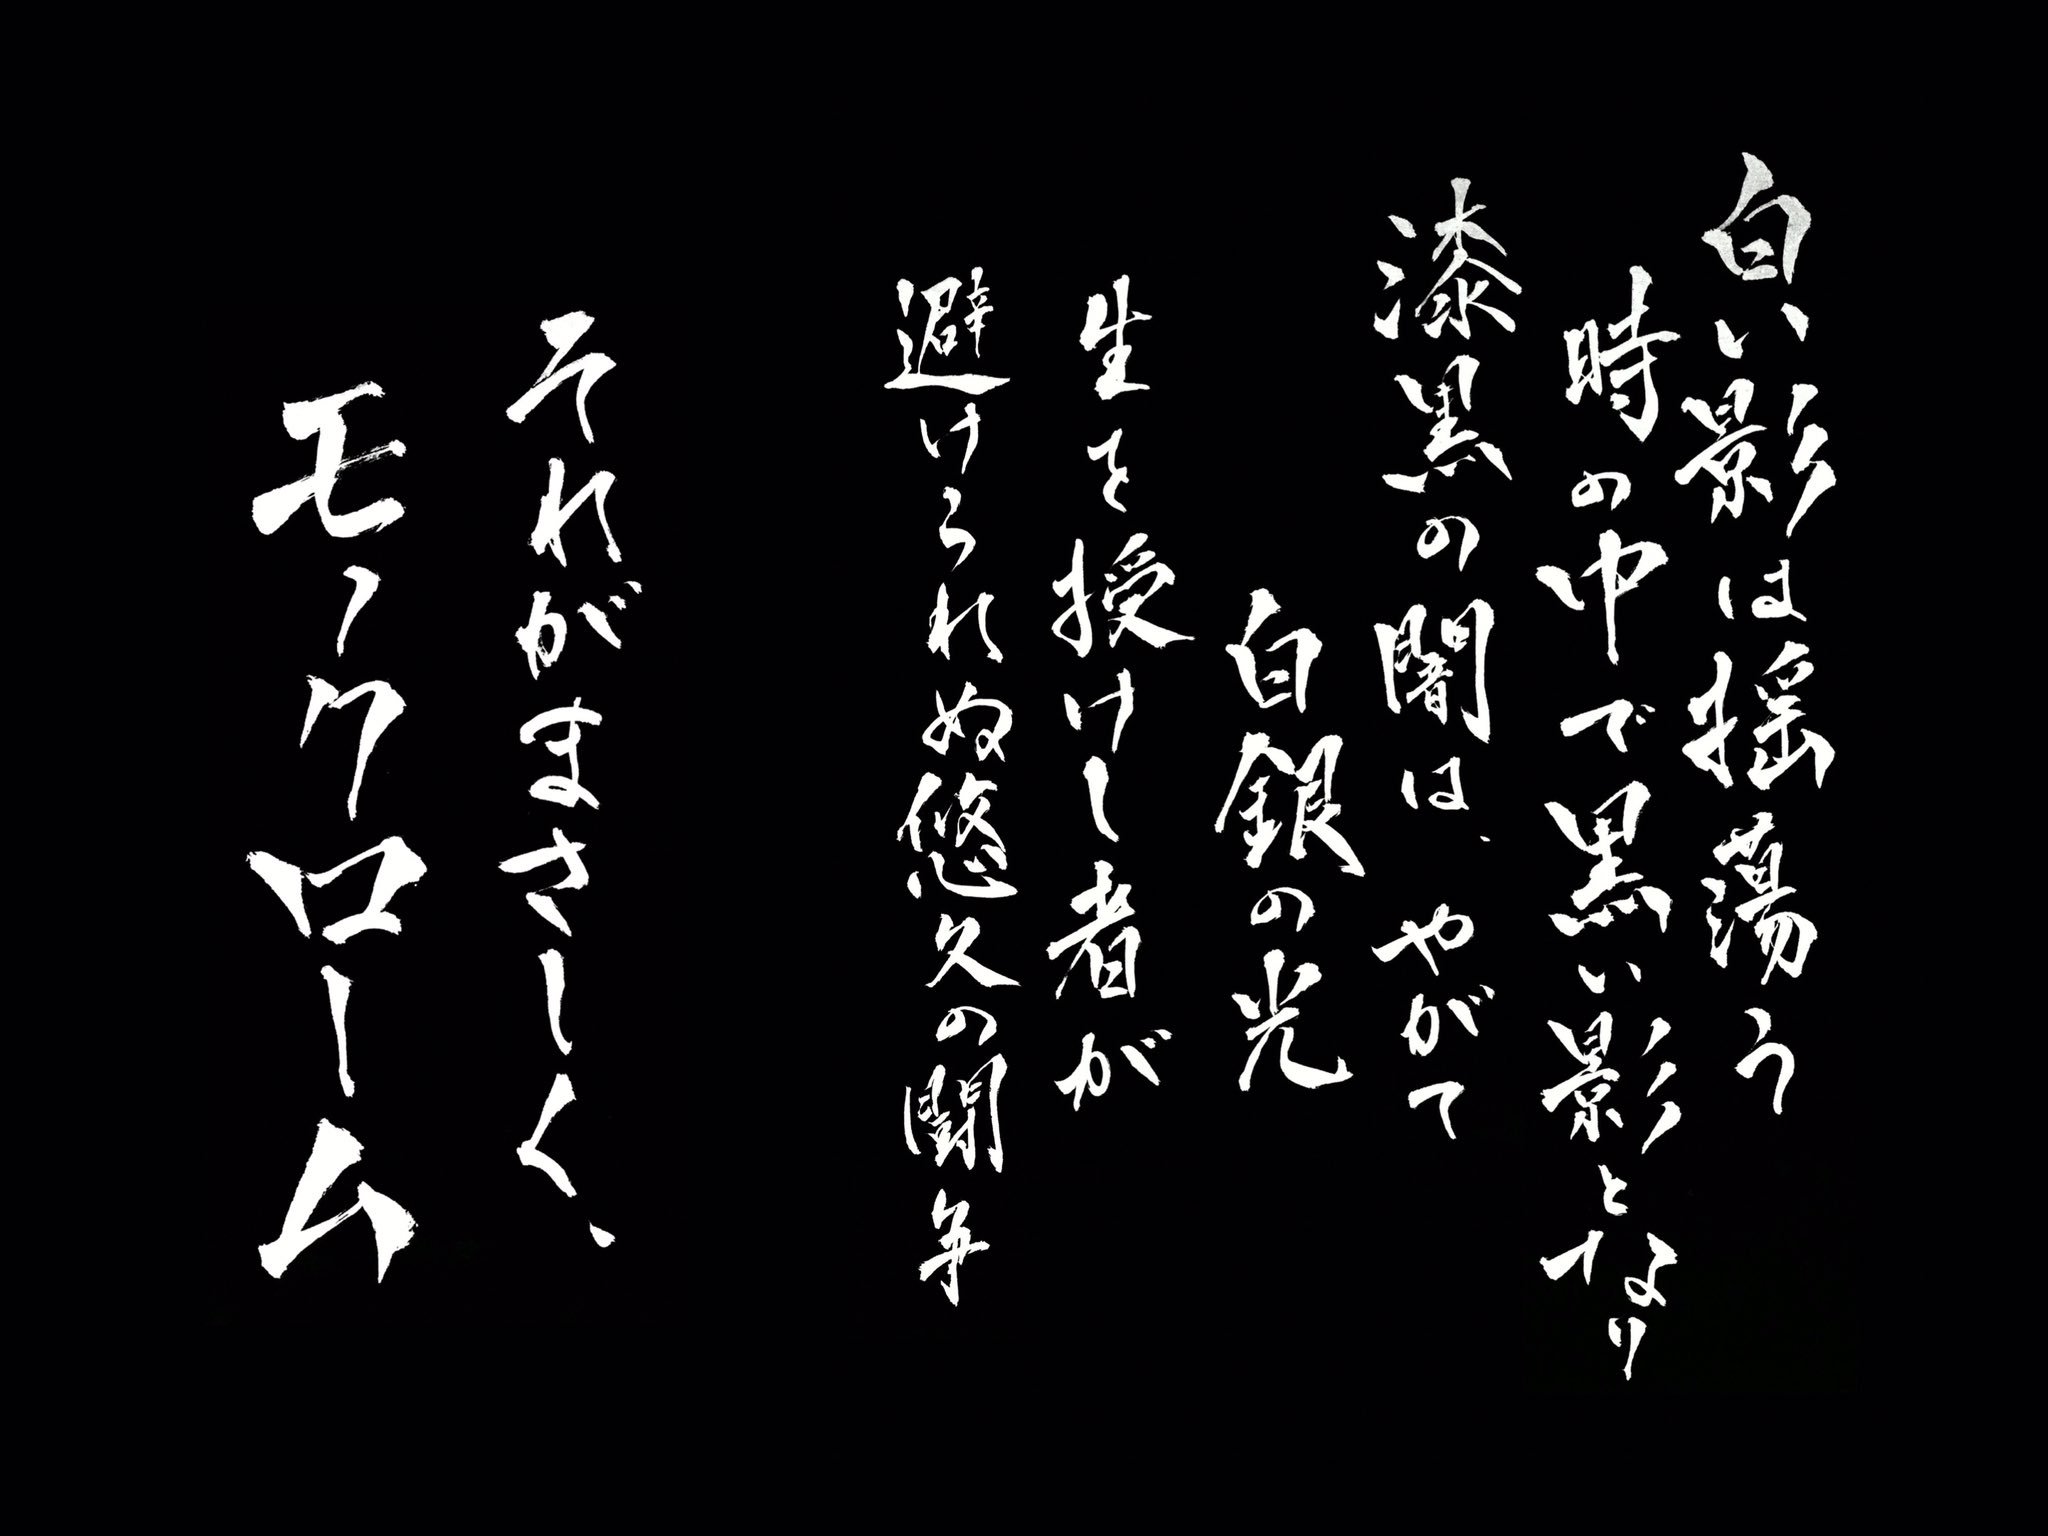 白い影は揺蕩う
時の中で黒い影となり
漆黒の闇は、やがて
白銀の光
生を授けし者が
避けられぬ悠久の闘争
それがまさしく、
モノクローム